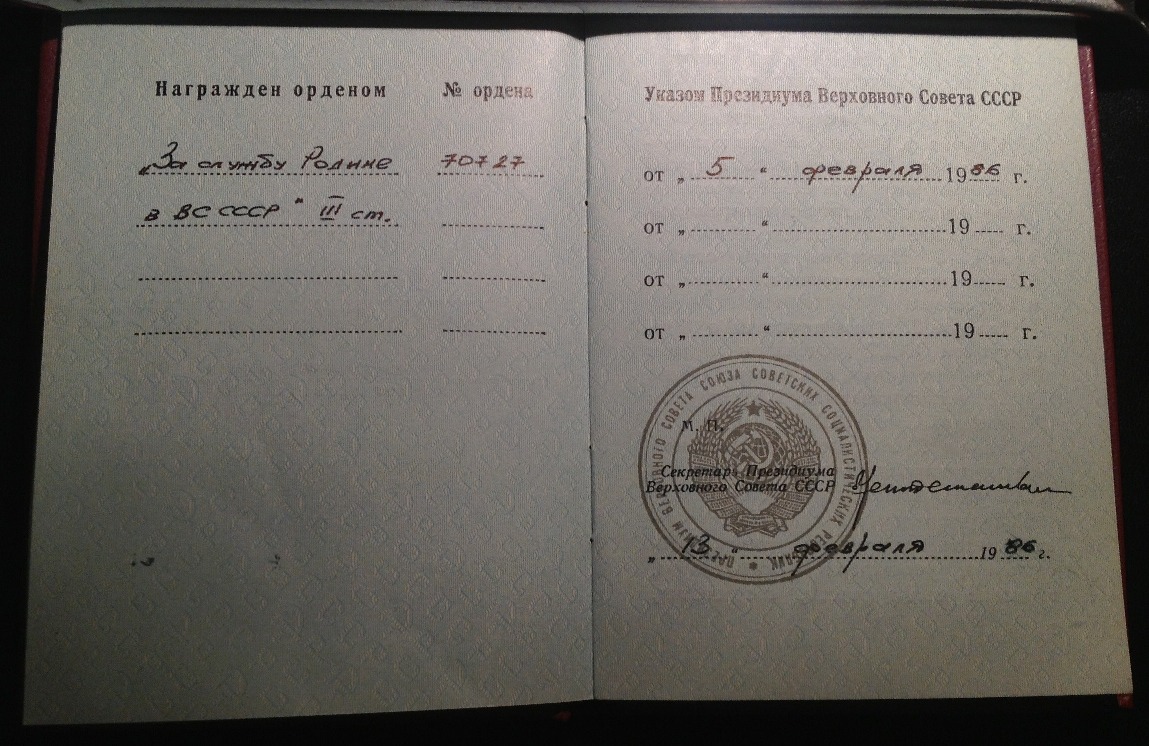 Награжден орденом № ордена
„За службу Родине 70727
в ВС СССР“ III ст.
Указом Президиума Верховного Совета СССР
от „ 5 “ февраля 1986 г.
от „ “ 19 г.
от „ “ 19 г.
от „ “ 19 г.
ПРЕЗИДИУМ ВЕРХОВНОГО СОВЕТА СОЮЗА СОВЕТСКИХ СОЦИАЛИСТИЧЕСКИХ РЕСПУБЛИК
М. П.
Секретарь Президиума
Верховного Совета СССР
„ 13 “ февраля 1986 г.